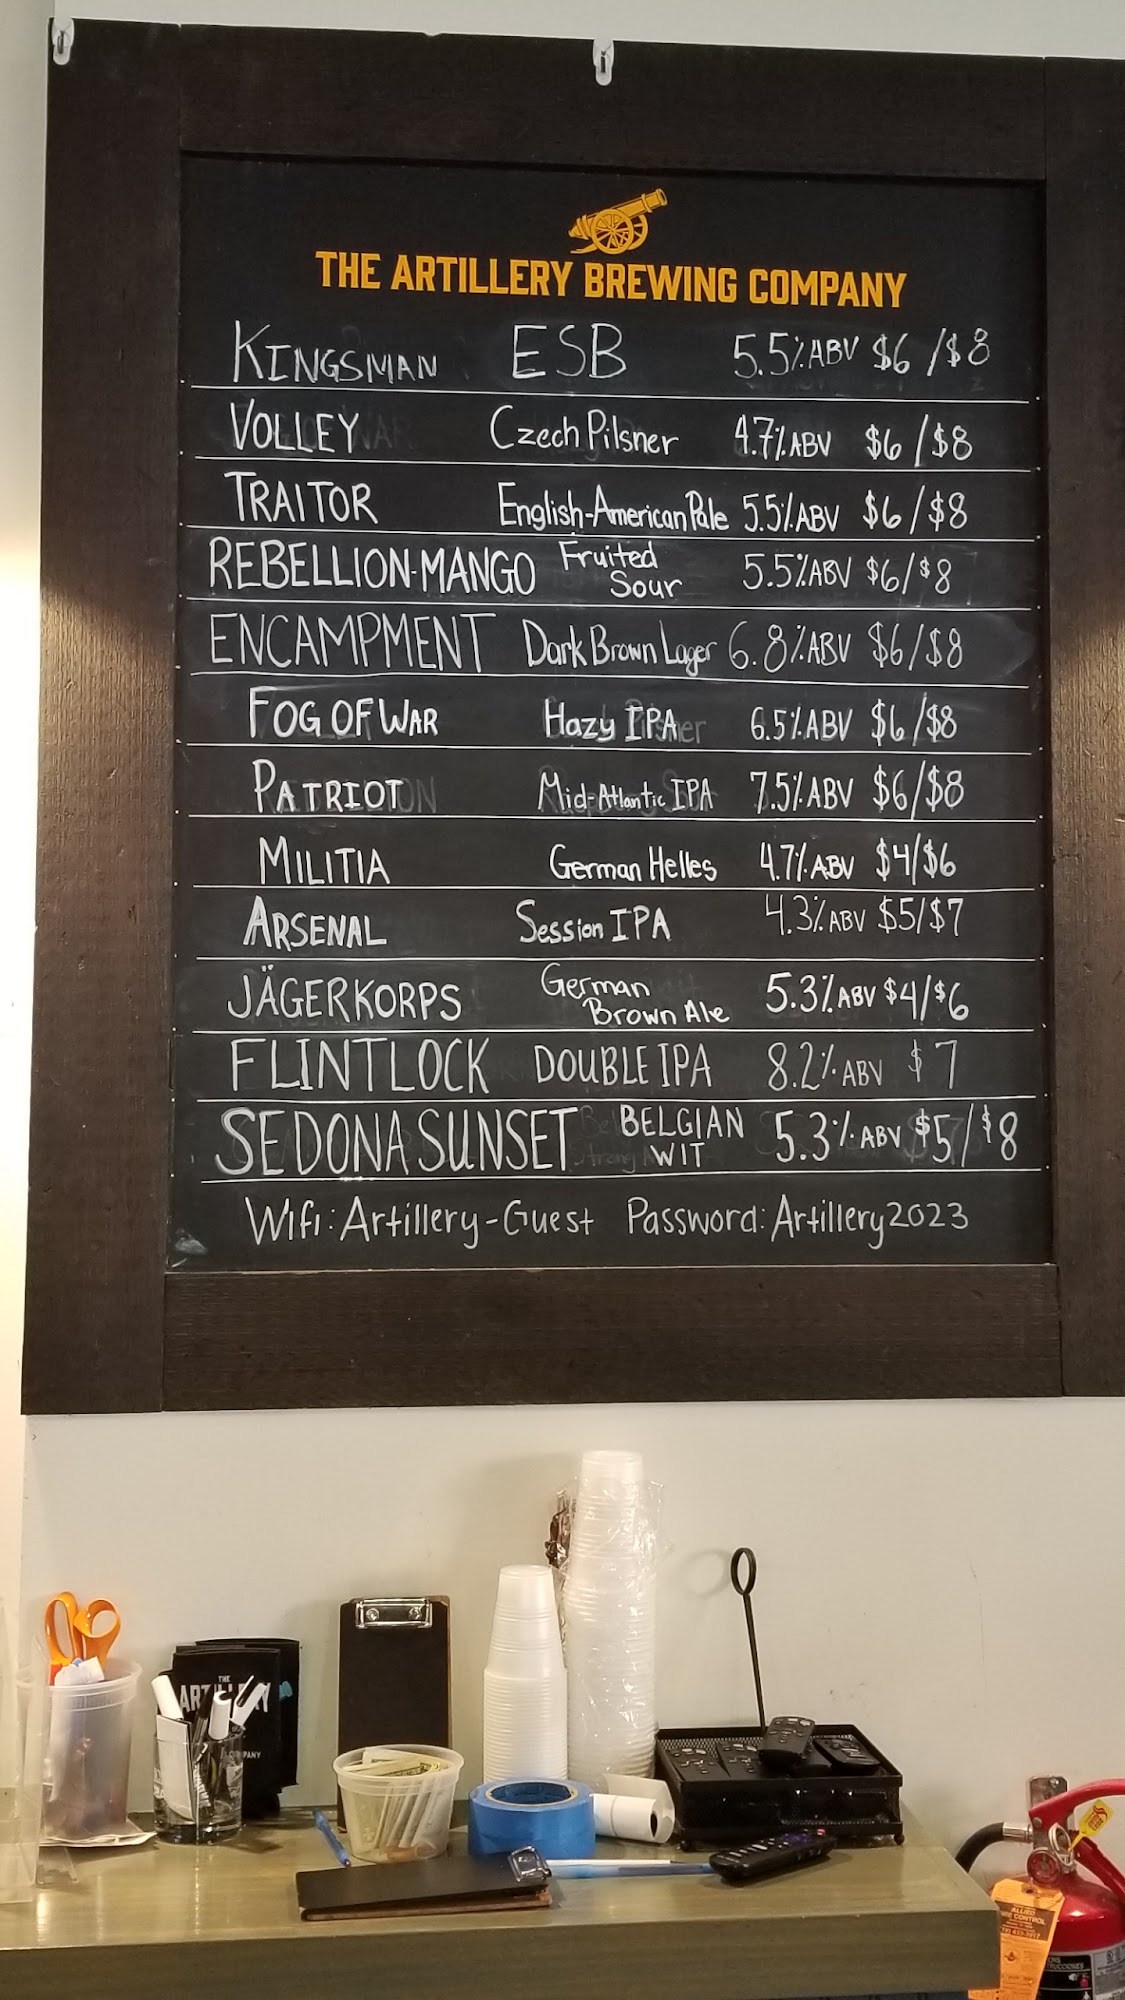 THE ARTILLERY BREWING COMPANY
KINGSMAN ESB 5.5% ABV $6 /$8
VOLLEY Czech Pilsner 4.7% ABV $6 /$8
TRAITOR English-American Pale 5.5% ABV $6/$8
REBELLION-MANGO Fruited Sour 5.5% ABV $6/$8
ENCAMPMENT Dark Brown Lager 6.8% ABV $6/$8
FOG OF WAR Hazy IPA 6.5% ABV $6/$8
PATRIOT Mid-Atlantic IPA 7.5% ABV $6/$8
MILITIA German Helles 4.7% ABV $4/$6
ARSENAL Session IPA 4.3% ABV $5/$7
JÄGERKORPS German Brown Ale 5.3% ABV $4/$6
FLINTLOCK DOUBLE IPA 8.2% ABV $7
SEDONA SUNSET BELGIAN WIT 5.3% ABV $5/$8
Wifi: Artillery-Guest Password: Artillery2023
THE
ARTILLERY
ALLIED